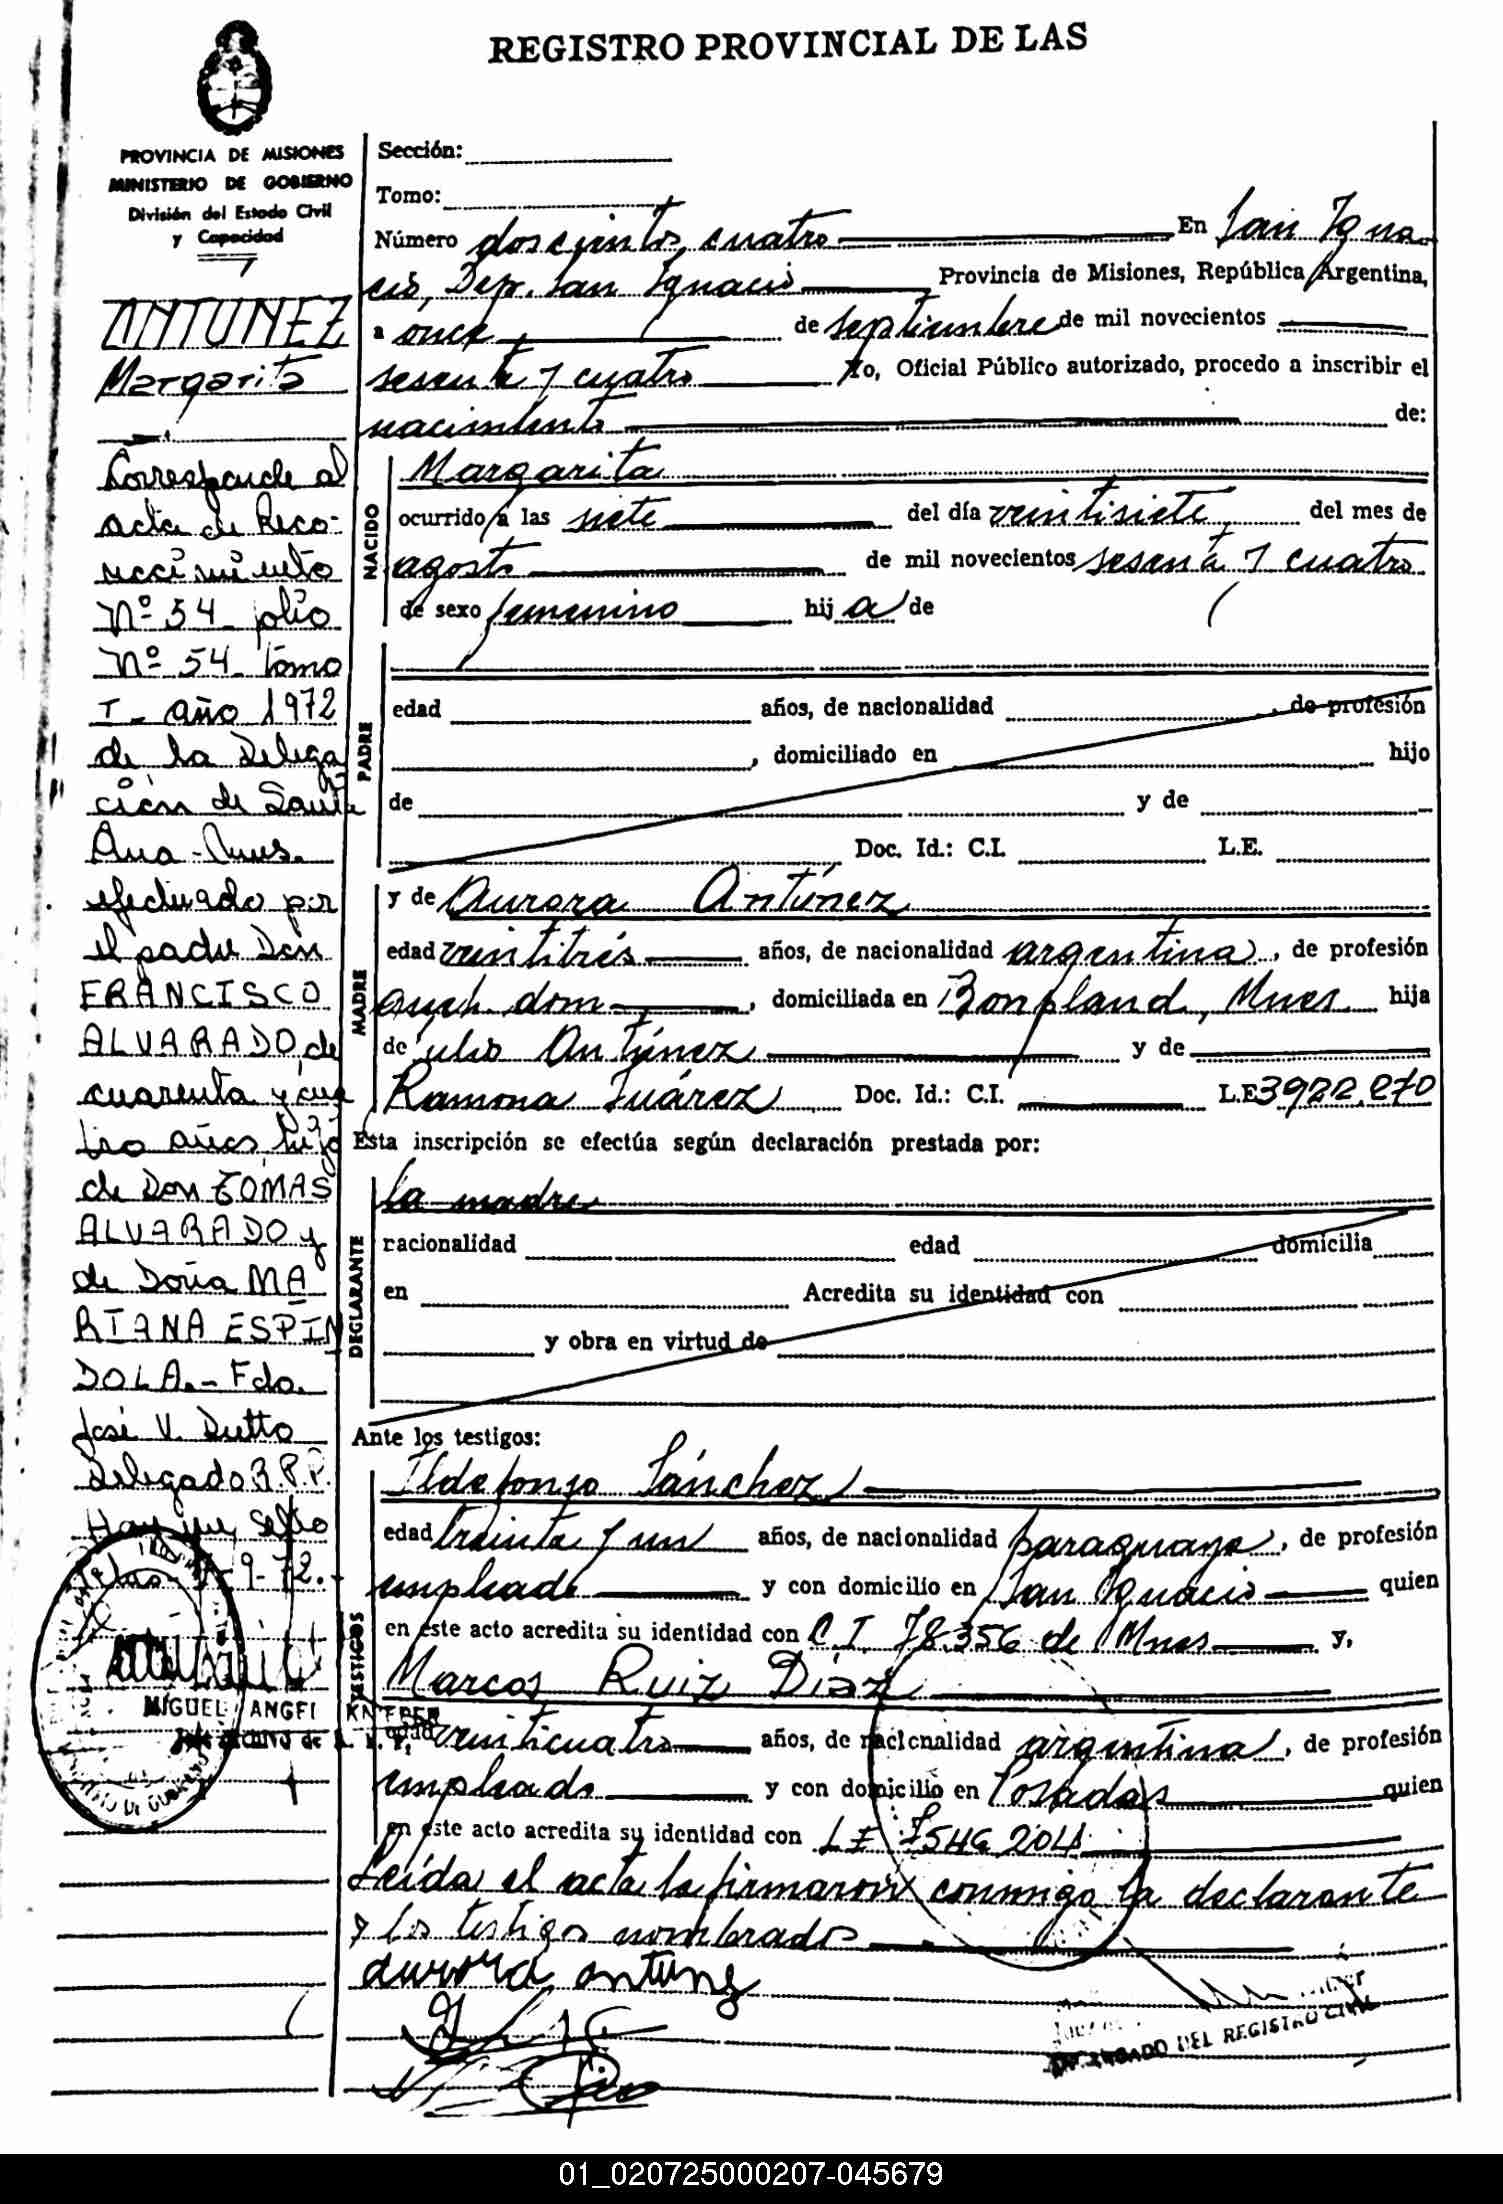 REGISTRO PROVINCIAL DE LAS
PROVINCIA DE MISIONES
MINISTERIO DE GOBIERNO
División del Estado Civil
y Capacidad
ANTUNEZ
Margarita
Corresponde al
acta de Reco-
nocimiento
Nº 54 folio
Nº 54 tomo
I - año 1972
de la Delega
ción de Santa
Ana - Mnes.
efectuado por
el padre Don
FRANCISCO
ALVARADO de
cuarenta y cua
tro años hijo
de Don TOMAS
ALVARADO y
de Doña MA
RIANA ESPIN
DOLA.- Fdo.
José V. Dutto
Delegado R.P.P.
Hay un sello
9-72.-
MIGUEL ANGEL KNEPER
Jefe Archivo de R. P. P.
Sección:
Tomo:
Número doscientos cuatro En San Igna
cio, Dep. San Ignacio Provincia de Misiones, República Argentina,
a once de septiembre de mil novecientos
sesenta y cuatro Yo, Oficial Público autorizado, procedo a inscribir el
nacimiento de:
NACIDO
Margarita
ocurrido a las siete del día veintisiete del mes de
agosto de mil novecientos sesenta y cuatro
de sexo femenino hij a de
PADRE
edad años, de nacionalidad , de profesión
, domiciliado en hijo
de y de
Doc. Id.: C.I. L.E.
MADRE
y de Aurora Antúnez
edad veintitrés años, de nacionalidad argentina, de profesión
queh. dom , domiciliada en Bonpland, Mnes. hija
de Julio Antúnez y de
Ramona Suárez Doc. Id.: C.I. L.E 3922.270
Esta inscripción se efectúa según declaración prestada por:
DECLARANTE
la madre
nacionalidad edad domicilia
en Acredita su identidad con
y obra en virtud de
Ante los testigos:
TESTIGOS
Ildefonso Sánchez
edad treinta y un años, de nacionalidad paraguaya, de profesión
empleado y con domicilio en San Ignacio quien
en este acto acredita su identidad con C.I. 78.356 de Mnes y,
Marcos Ruiz Díaz
edad veinticuatro años, de nacionalidad argentina, de profesión
empleado y con domicilio en Posadas quien
en este acto acredita su identidad con L E 7546204
Leída el acta la firmaron conmigo la declarante
y los testigo nombrados
aurora antunez
DEL REGISTRO CIVIL
01_020725000207-045679